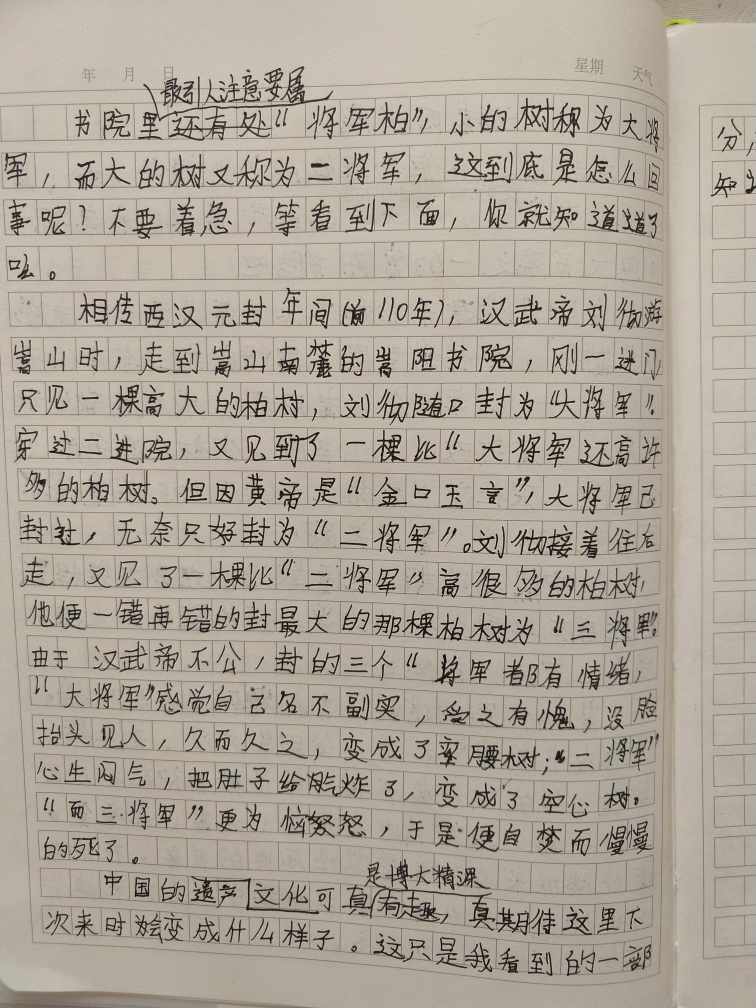 年 月 日 星期 天气
最引人注意要属
书院里还有处“将军柏”,小的树称为大将
军,而大的树又称为二将军,这到底是怎么回
事呢?不要着急,等看到下面,你就知道道了
呕。
相传西汉元封年间(前110年),汉武帝刘彻游
嵩山时,走到嵩山南麓的嵩阳书院,刚一进门,
只见一棵高大的柏树,刘彻随口封为“大将军”。
穿过二进院,又见到了一棵比“大将军还高许
多的柏树。但因黄帝是“金口玉言”,大将军已
封过,无奈只好封为“二将军”。刘彻接着往后
走,又见了一棵比“二将军”高很多的柏树,
他便一错再错的封最大的那棵柏树为“三将军”。
由于汉武帝不公,封的三个“将军都有情绪,
“大将军”感觉自己名不副实,受之有愧,没脸
抬头见人,久而久之,变成了弯腰树;“二将军”
心生闷气,把肚子给气炸了,变成了空心树。
“而三将军”更为恼怒,于是便自焚而慢慢
的死了。
是博大精深
中国的遗产文化可真有趣,真期待这里下
次来时会变成什么样子。这只是我看到的一部
分,
知